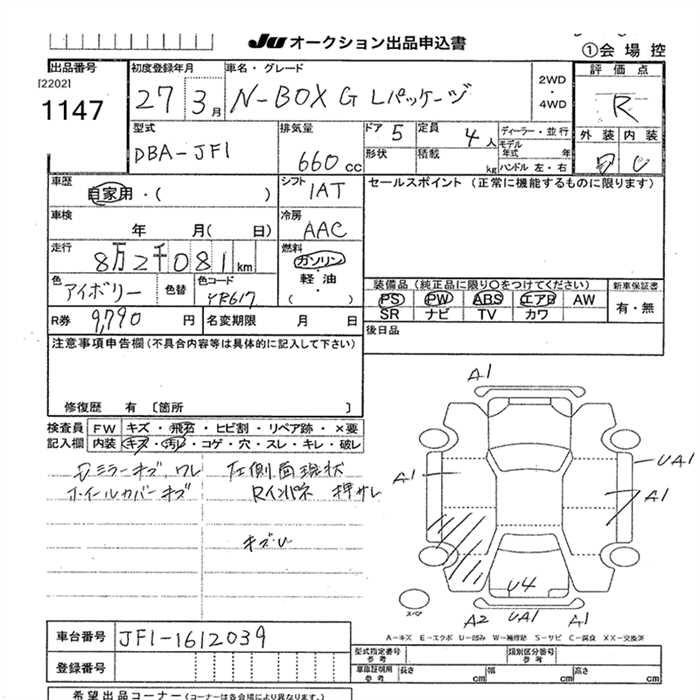 JU オークション出品申込書
①会場控
出品番号
[2202]
1147
初度登録年月
27 3月
車名・グレード
N-BOX G Lパッケージ
2WD
・
4WD
評価点
R
外装 内装
D C
型式
DBA-JF1
排気量
660cc
ドア 5
定員 4人
ディーラー・並行
モデル年式 年
形状
積載 kg
ハンドル 左・右
車歴
自家用・( )
シフト
IAT
セールスポイント (正常に機能するものに限ります)
車検
年 月( 日)
冷房
AAC
走行
8万2千081km
燃料
ガソリン
軽・油
( )
色
アイボリー
色替
色コード
YR617
装備品 (純正品に限り○をつけてください)
PS PW ABS エアB AW
SR ナビ TV カワ
新車保証書
有・無
R券 9,790 円
名変期限 月 日
後日品
注意事項申告欄 (不具合内容等は具体的に記入して下さい)
修復歴 有 [箇所 ]
検査員 FW キズ・飛石・ヒビ割・リペア跡・×要
記入欄 内装 キズ・汚れ・コゲ・穴・スレ・キレ・破レ
Dミラーキズ、ワレ
ホイールカバーキズ
左側面現状
Rインパネ 押サレ
キズU
A1
A1
UA1
A1
U4
A2
UA1
A1
スペア
A-キズ E-エクボ U-凹み W-補修跡 S-サビ C-腐食 XX-交換済
車台番号 JF1-1612039
登録番号
型式指定番号
参考
類別区分番号
参考
車庫証明用
参考
長さ cm
幅 cm
高さ cm
希望出品コーナー (コーナーは各会場により異なります。)